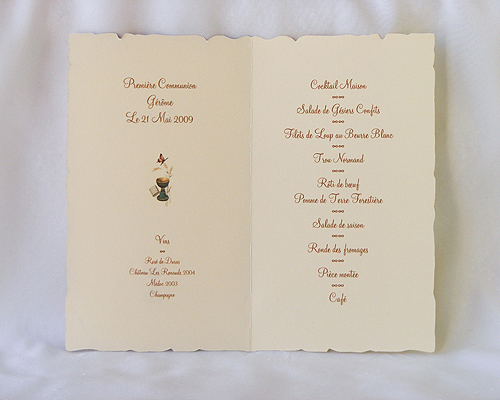 Première Communion
Gérôme
Le 21 Mai 2009
Vins
Rosé de
Château Les 2004
Médoc 2003
Champagne
Cocktail Maison
Salade de Gésiers Confits
Filets de Loup au Beurre Blanc
Trou Normand
Roti de bœuf
Pomme de Terre Forestière
Salade de saison
Ronde des fromages
Pièce montée
Café